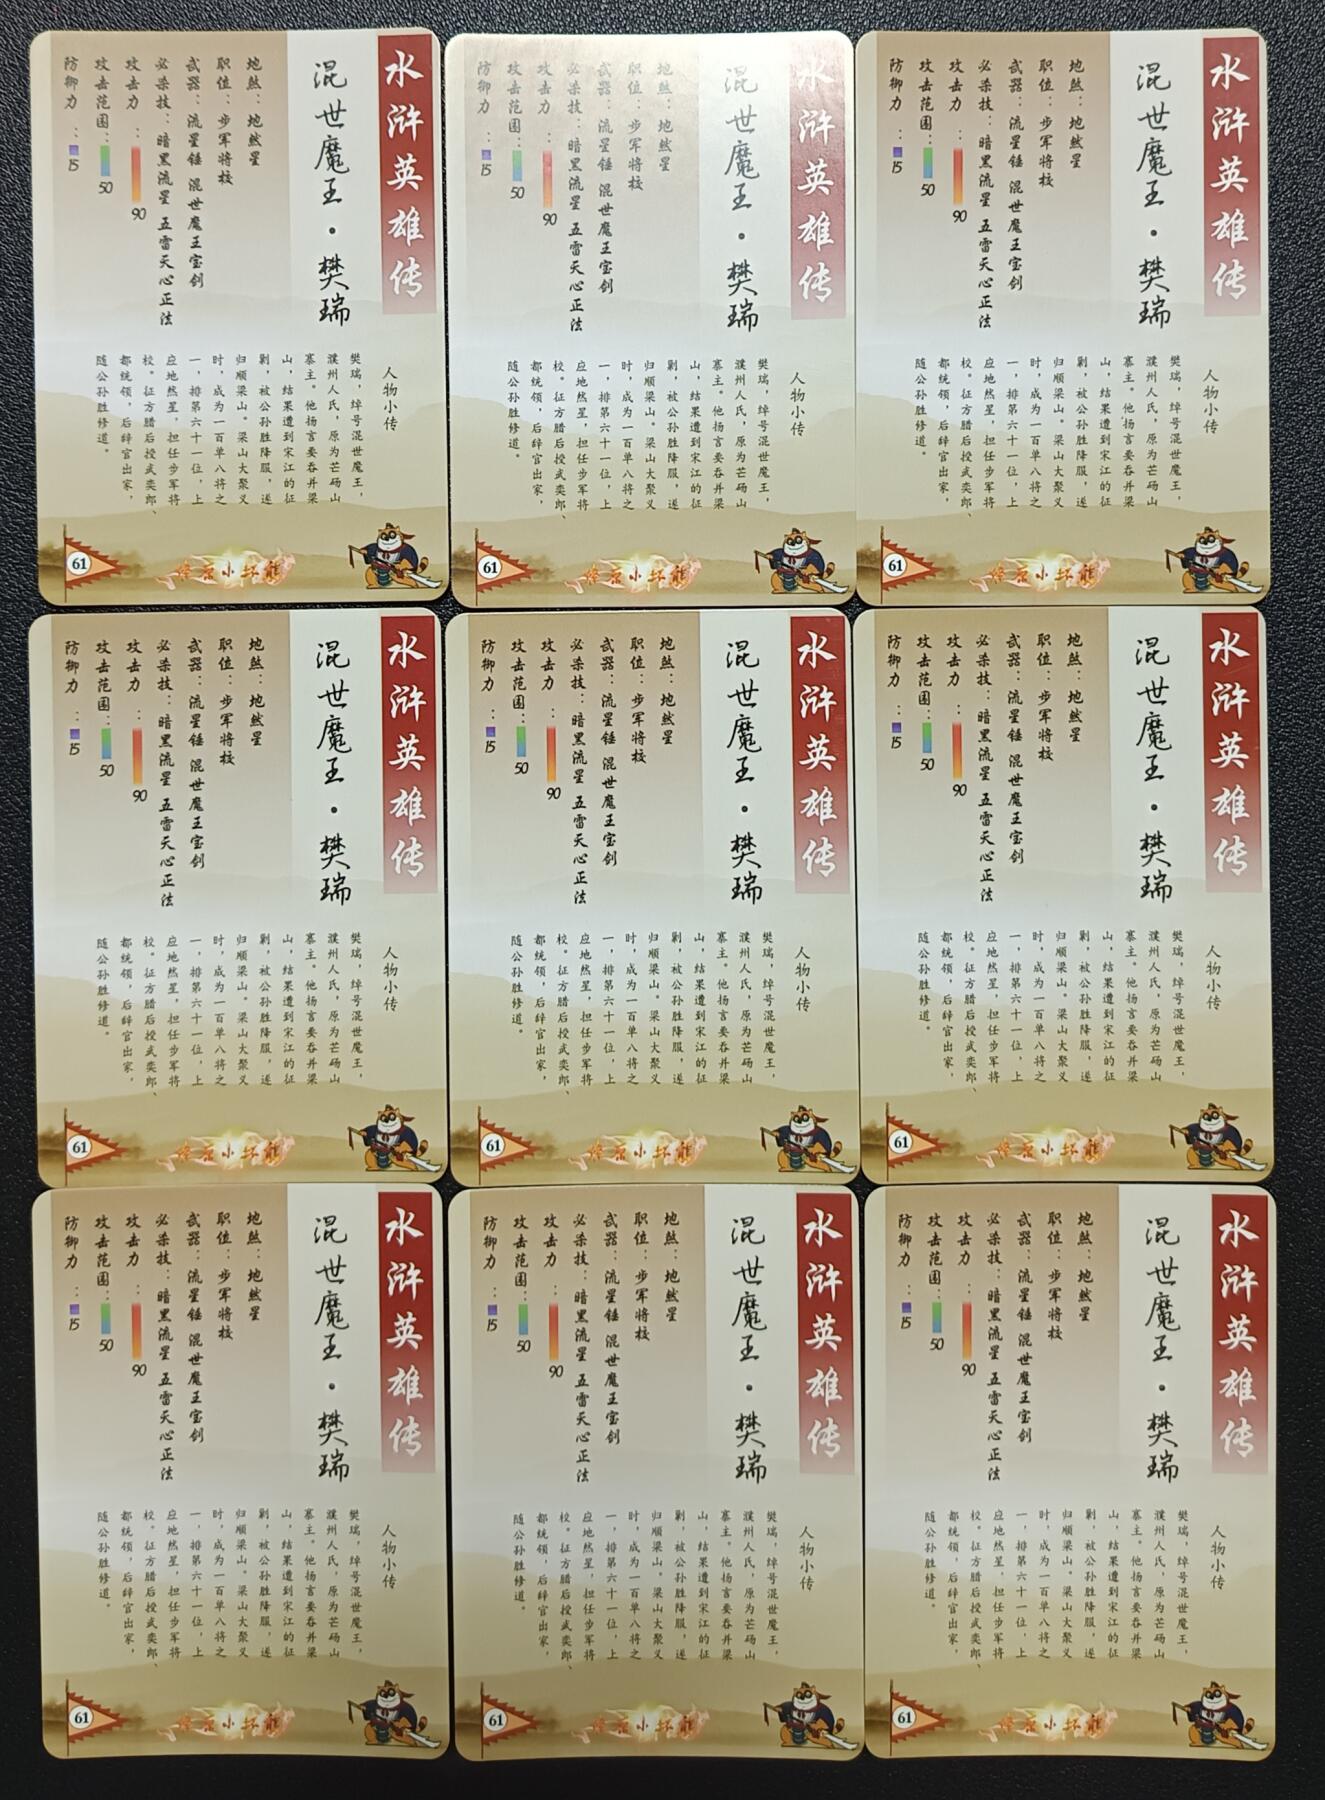 水浒英雄传
混世魔王·樊瑞
地煞：地然星
职位：步军将校
武器：流星锤 混世魔王宝剑
必杀技：暗黑流星 五雷天心正法
攻击力：90
攻击范围：50
防御力：15
人物小传
樊瑞，绰号混世魔王，
濮州人氏，原为芒砀山
寨主。他扬言要吞并梁
山，结果遭到宋江的征
剿，被公孙胜降服，遂
归顺梁山。梁山大聚义
时，成为一百单八将之
一，排第六十一位，上
应地然星，担任步军将
校。征方腊后授武奕郎、
都统领，后辞官出家，
随公孙胜修道。
61
水浒英雄传
混世魔王·樊瑞
地煞：地然星
职位：步军将校
武器：流星锤 混世魔王宝剑
必杀技：暗黑流星 五雷天心正法
攻击力：90
攻击范围：50
防御力：15
人物小传
樊瑞，绰号混世魔王，
濮州人氏，原为芒砀山
寨主。他扬言要吞并梁
山，结果遭到宋江的征
剿，被公孙胜降服，遂
归顺梁山。梁山大聚义
时，成为一百单八将之
一，排第六十一位，上
应地然星，担任步军将
校。征方腊后授武奕郎、
都统领，后辞官出家，
随公孙胜修道。
61
水浒英雄传
混世魔王·樊瑞
地煞：地然星
职位：步军将校
武器：流星锤 混世魔王宝剑
必杀技：暗黑流星 五雷天心正法
攻击力：90
攻击范围：50
防御力：15
人物小传
樊瑞，绰号混世魔王，
濮州人氏，原为芒砀山
寨主。他扬言要吞并梁
山，结果遭到宋江的征
剿，被公孙胜降服，遂
归顺梁山。梁山大聚义
时，成为一百单八将之
一，排第六十一位，上
应地然星，担任步军将
校。征方腊后授武奕郎、
都统领，后辞官出家，
随公孙胜修道。
61
水浒英雄传
混世魔王·樊瑞
地煞：地然星
职位：步军将校
武器：流星锤 混世魔王宝剑
必杀技：暗黑流星 五雷天心正法
攻击力：90
攻击范围：50
防御力：15
人物小传
樊瑞，绰号混世魔王，
濮州人氏，原为芒砀山
寨主。他扬言要吞并梁
山，结果遭到宋江的征
剿，被公孙胜降服，遂
归顺梁山。梁山大聚义
时，成为一百单八将之
一，排第六十一位，上
应地然星，担任步军将
校。征方腊后授武奕郎、
都统领，后辞官出家，
随公孙胜修道。
61
水浒英雄传
混世魔王·樊瑞
地煞：地然星
职位：步军将校
武器：流星锤 混世魔王宝剑
必杀技：暗黑流星 五雷天心正法
攻击力：90
攻击范围：50
防御力：15
人物小传
樊瑞，绰号混世魔王，
濮州人氏，原为芒砀山
寨主。他扬言要吞并梁
山，结果遭到宋江的征
剿，被公孙胜降服，遂
归顺梁山。梁山大聚义
时，成为一百单八将之
一，排第六十一位，上
应地然星，担任步军将
校。征方腊后授武奕郎、
都统领，后辞官出家，
随公孙胜修道。
61
水浒英雄传
混世魔王·樊瑞
地煞：地然星
职位：步军将校
武器：流星锤 混世魔王宝剑
必杀技：暗黑流星 五雷天心正法
攻击力：90
攻击范围：50
防御力：15
人物小传
樊瑞，绰号混世魔王，
濮州人氏，原为芒砀山
寨主。他扬言要吞并梁
山，结果遭到宋江的征
剿，被公孙胜降服，遂
归顺梁山。梁山大聚义
时，成为一百单八将之
一，排第六十一位，上
应地然星，担任步军将
校。征方腊后授武奕郎、
都统领，后辞官出家，
随公孙胜修道。
61
水浒英雄传
混世魔王·樊瑞
地煞：地然星
职位：步军将校
武器：流星锤 混世魔王宝剑
必杀技：暗黑流星 五雷天心正法
攻击力：90
攻击范围：50
防御力：15
人物小传
樊瑞，绰号混世魔王，
濮州人氏，原为芒砀山
寨主。他扬言要吞并梁
山，结果遭到宋江的征
剿，被公孙胜降服，遂
归顺梁山。梁山大聚义
时，成为一百单八将之
一，排第六十一位，上
应地然星，担任步军将
校。征方腊后授武奕郎、
都统领，后辞官出家，
随公孙胜修道。
61
水浒英雄传
混世魔王·樊瑞
地煞：地然星
职位：步军将校
武器：流星锤 混世魔王宝剑
必杀技：暗黑流星 五雷天心正法
攻击力：90
攻击范围：50
防御力：15
人物小传
樊瑞，绰号混世魔王，
濮州人氏，原为芒砀山
寨主。他扬言要吞并梁
山，结果遭到宋江的征
剿，被公孙胜降服，遂
归顺梁山。梁山大聚义
时，成为一百单八将之
一，排第六十一位，上
应地然星，担任步军将
校。征方腊后授武奕郎、
都统领，后辞官出家，
随公孙胜修道。
61
水浒英雄传
混世魔王·樊瑞
地煞：地然星
职位：步军将校
武器：流星锤 混世魔王宝剑
必杀技：暗黑流星 五雷天心正法
攻击力：90
攻击范围：50
防御力：15
人物小传
樊瑞，绰号混世魔王，
濮州人氏，原为芒砀山
寨主。他扬言要吞并梁
山，结果遭到宋江的征
剿，被公孙胜降服，遂
归顺梁山。梁山大聚义
时，成为一百单八将之
一，排第六十一位，上
应地然星，担任步军将
校。征方腊后授武奕郎、
都统领，后辞官出家，
随公孙胜修道。
61